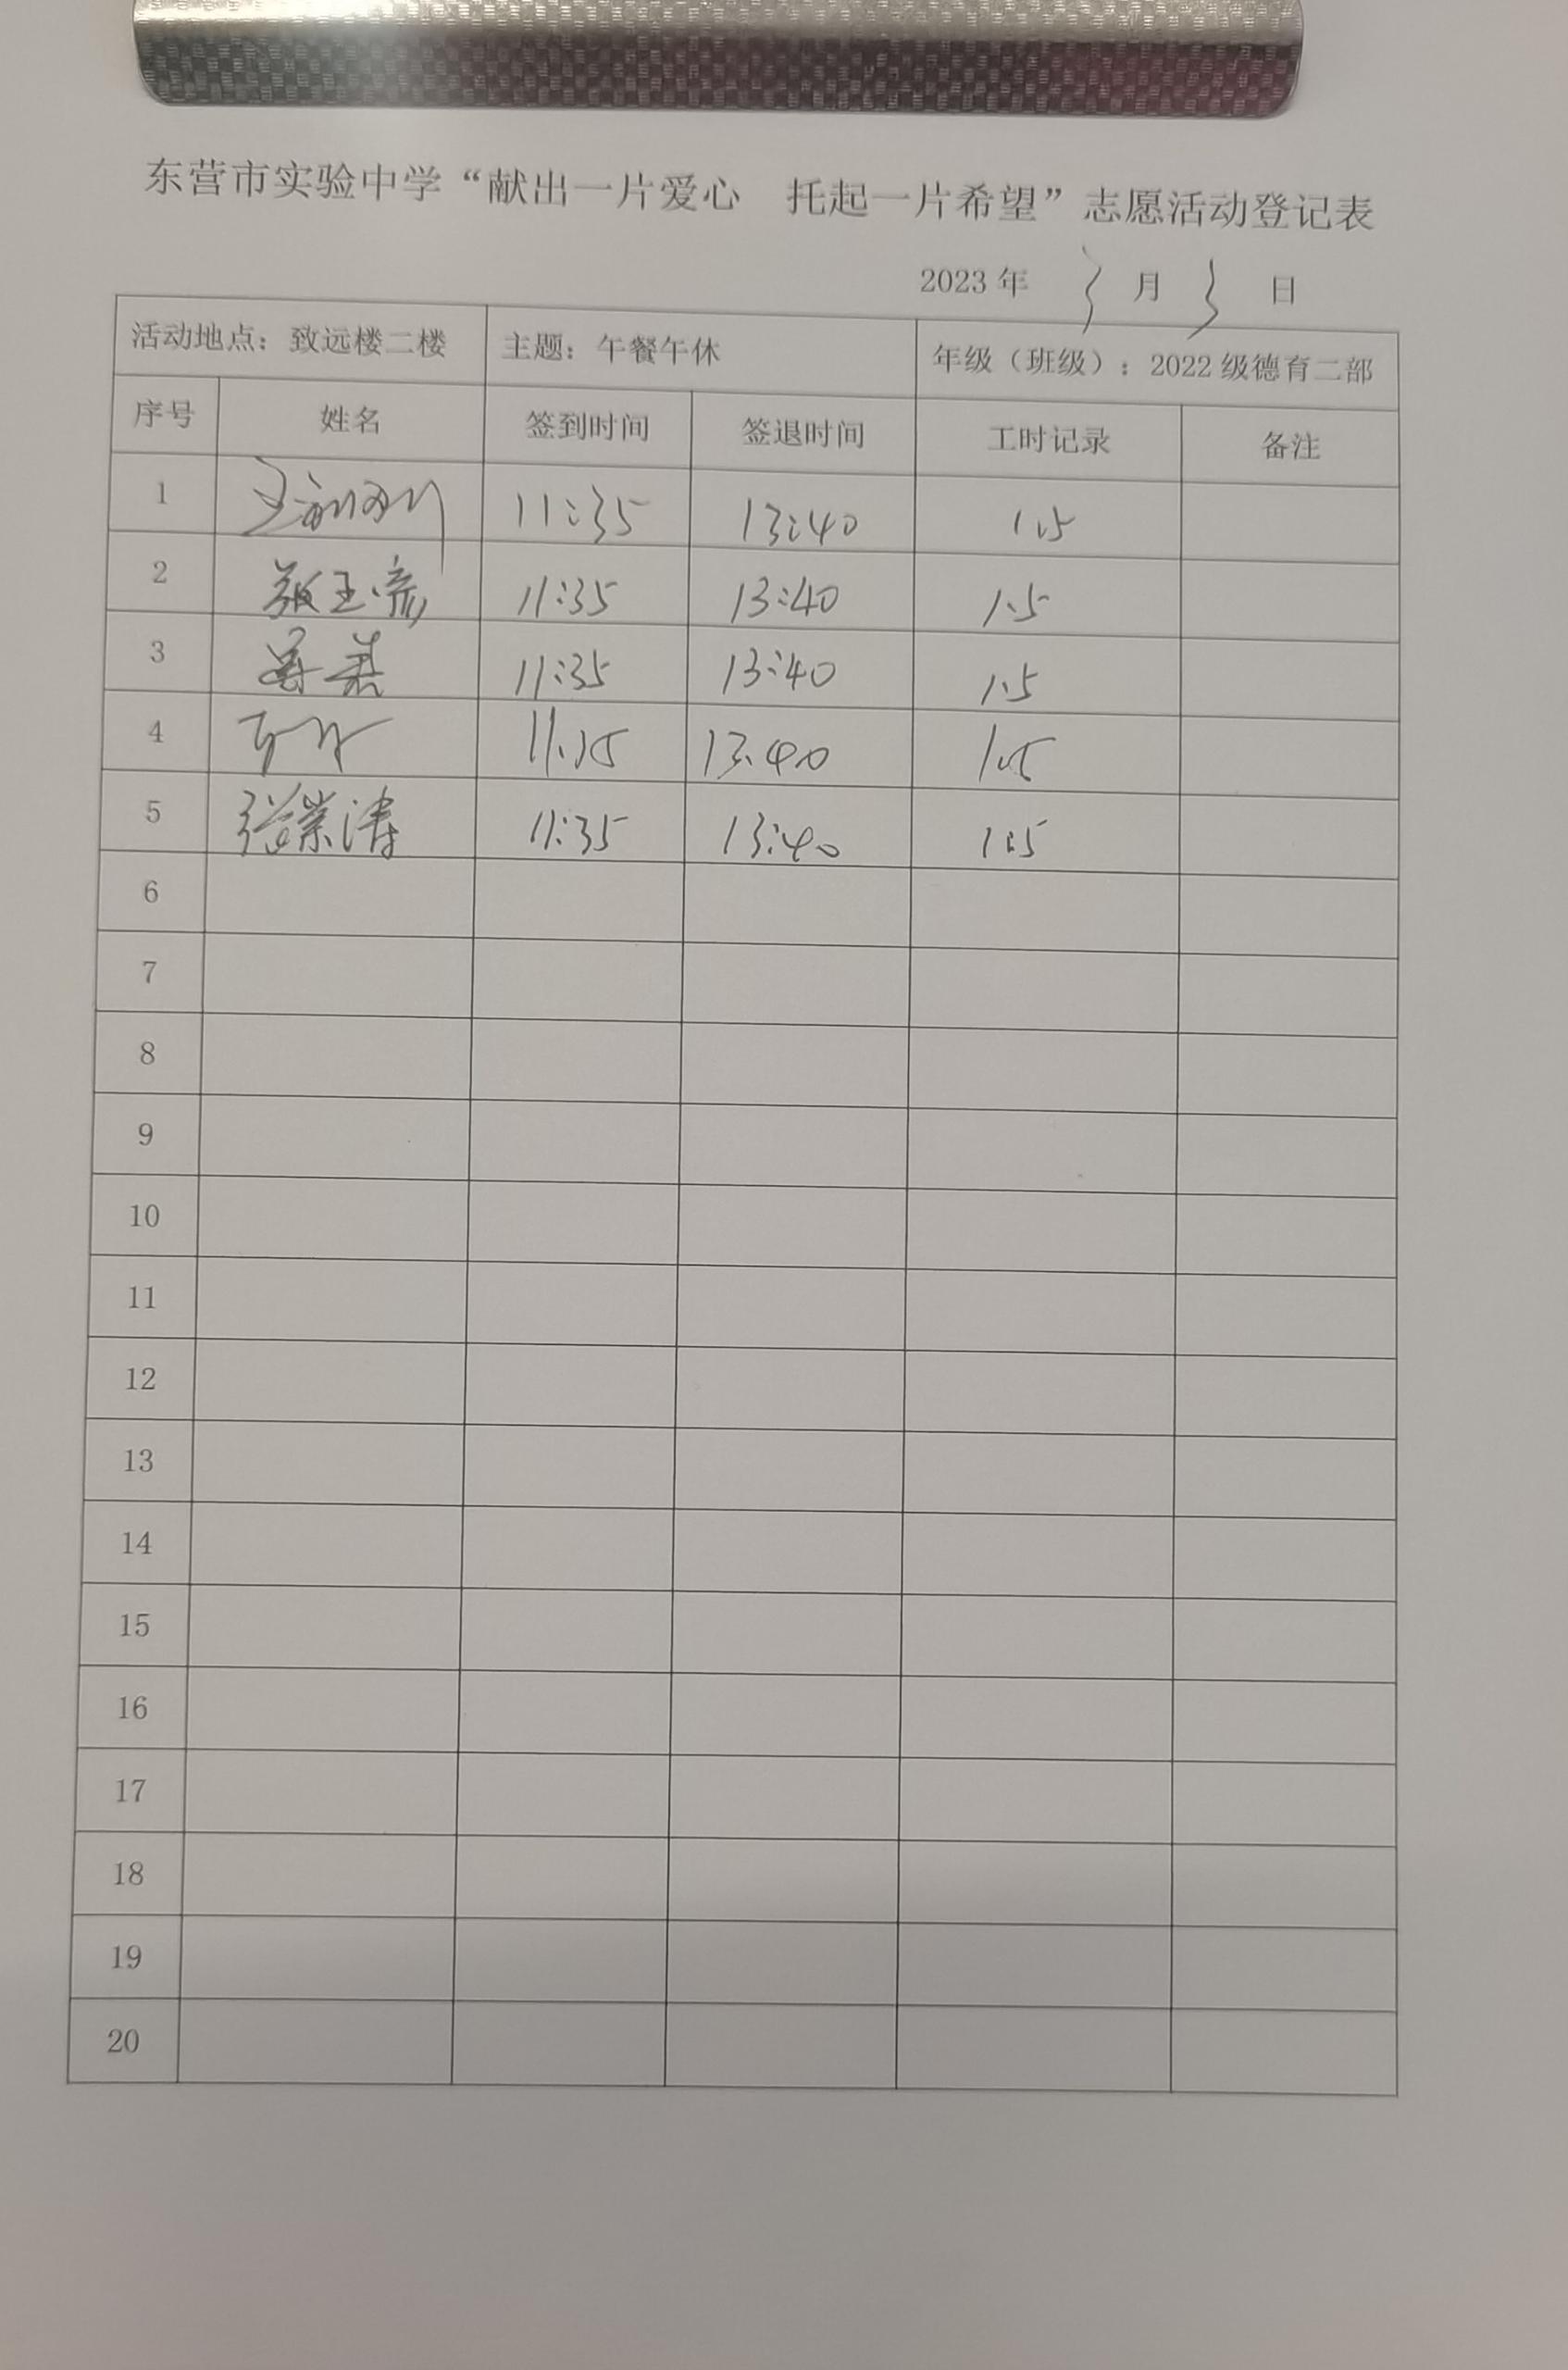 东营市实验中学“献出一片爱心 托起一片希望”志愿活动登记表
2023 年 3 月 3 日
活动地点：致远楼二楼 主题：午餐午休 年级（班级）：2022 级德育二部
序号 姓名 签到时间 签退时间 工时记录 备注
1 11:35 13:40 1.5
2 11:35 13:40 1.5
3 11:35 13:40 1.5
4 11:35 13:40 1.5
5 张崇涛 11:35 13:40 1.5
6
7
8
9
10
11
12
13
14
15
16
17
18
19
20